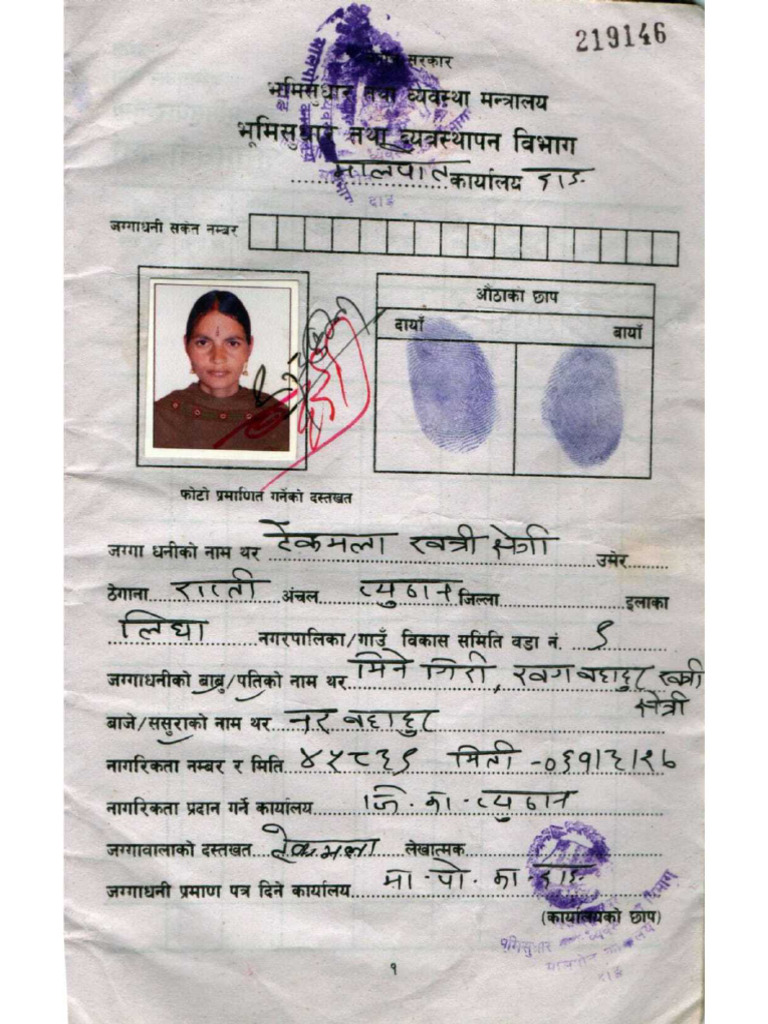 219146
सरकार
भूमिसुधार तथा व्यवस्था मन्त्रालय
भूमिसुधार तथा व्यवस्थापन विभाग
मालपोत कार्यालय दाङ
जग्गाधनी सकेत नम्बर
औंठाको छाप
दायाँ बायाँ
फोटो प्रमाणित गर्नेको दस्तखत
जग्गा धनीको नाम थर टेकमला खत्री क्षेत्री उमेर
ठेगाना राप्ती अंचल प्युठान जिल्ला इलाका
लिघा नगरपालिका/गाउँ विकास समिति वडा नं. ९
जग्गाधनीको बाबु/पतिको नाम थर मिने गिरी, खगबहादुर खत्री
क्षेत्री
बाजे/ससुराको नाम थर नर बहादुर
नागरिकता नम्बर र मिति ४५८३९ मिती -०६१/३/१७
नागरिकता प्रदान गर्ने कार्यालय जि. का. प्युठान
जग्गावालाको दस्तखत टेकमला लेखात्मक
जग्गाधनी प्रमाण पत्र दिने कार्यालय मा. पो. का. दाङ
(कार्यालयको छाप)
१